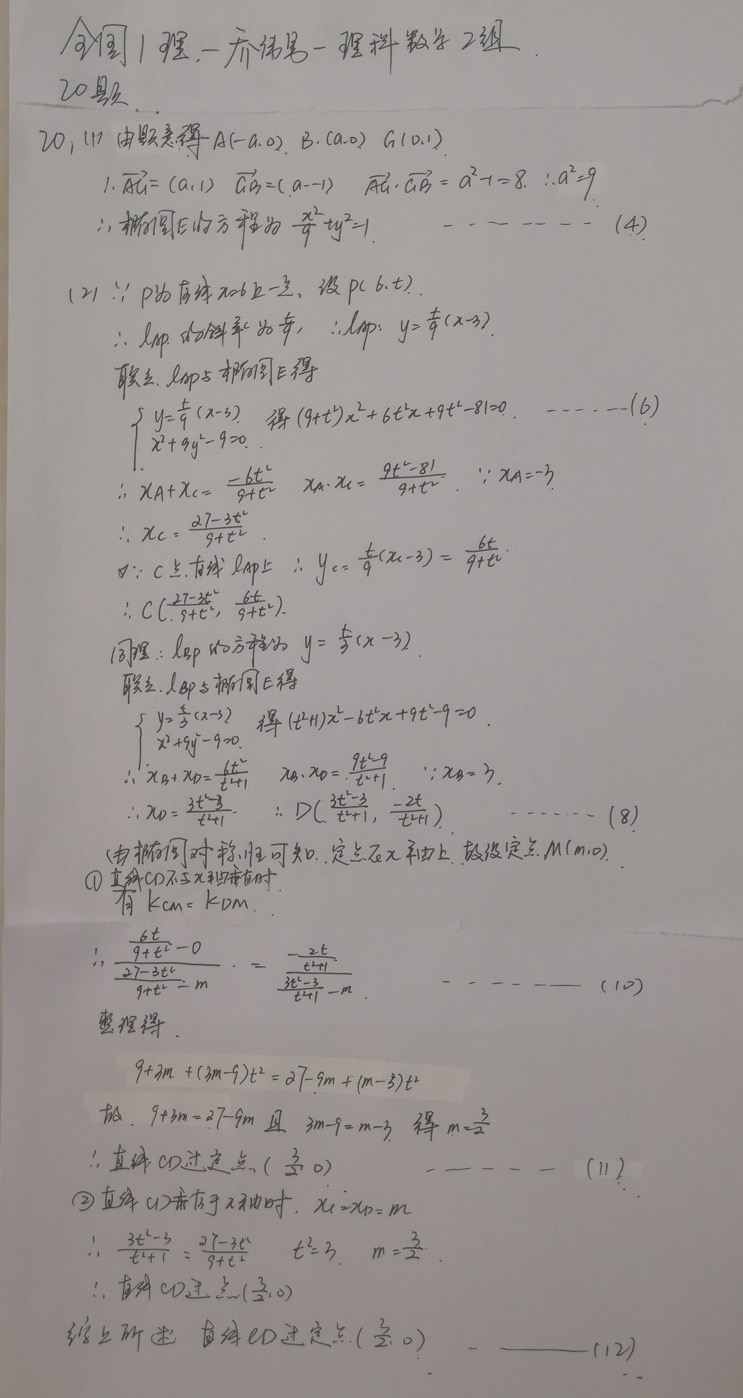 全国1理-乔伟男-理科数学2组
20题
20,(1) 由题意得A(-a,0) B(a,0) G(0,1)
∴ AG=(a,1) GB=(a,-1) AG·GB=a²-1=8 ∴a²=9
∴椭圆E的方程为 x²/9+y²=1 ------- (4)
(2) ∵P为直线x=6上一点, 设P(6,t)
∴ lAP 的斜率为t/9, ∴lAP: y=t/9(x-3)
联立 lAP与椭圆E得
{ y=t/9(x-3) 得(9+t²)x²+6t²x+9t²-81=0 ------(6)
x²+9y²-9=0
∴ xA+xC=-6t²/(9+t²) xA·xC=(9t²-81)/(9+t²) ∵xA=-3
∴ xC=(27-3t²)/(9+t²)
又∵C点直线lAP上 ∴yC=t/9(xC-3)=6t/(9+t²)
∴C((27-3t²)/(9+t²), 6t/(9+t²))
同理:lBP的方程为 y=t/3(x-3)
联立lBP与椭圆E得
{ y=t/3(x-3) 得(t²+1)x²-6t²x+9t²-9=0
x²+9y²-9=0
∴xB+xD=6t²/(t²+1) xB·xD=(9t²-9)/(t²+1) ∵xB=3
∴xD=(3t²-3)/(t²+1) ∴D((3t²-3)/(t²+1), -2t/(t²+1)) ------(8)
由椭圆对称性可知,定点在x轴上,故设定点M(m,0)
①直线CD不与x轴垂直时
有 KCM=KDM
∴ (6t/(9+t²)-0)/((27-3t²)/(9+t²)-m) = (-2t/(t²+1))/((3t²-3)/(t²+1)-m) ------(10)
整理得
9+3m+(3m-9)t²=27-9m+(m-3)t²
故 9+3m=27-9m 且 3m-9=m-3 得m=3/2
∴直线CD过定点(3/2,0) ------(11)
②直线CD垂直于x轴时, xC=xD=m
∴ (3t²-3)/(t²+1)=(27-3t²)/(9+t²) t²=3 m=3/2
∴直线CD过点(3/2,0)
综上所述 直线CD过定点(3/2,0) ------(12)